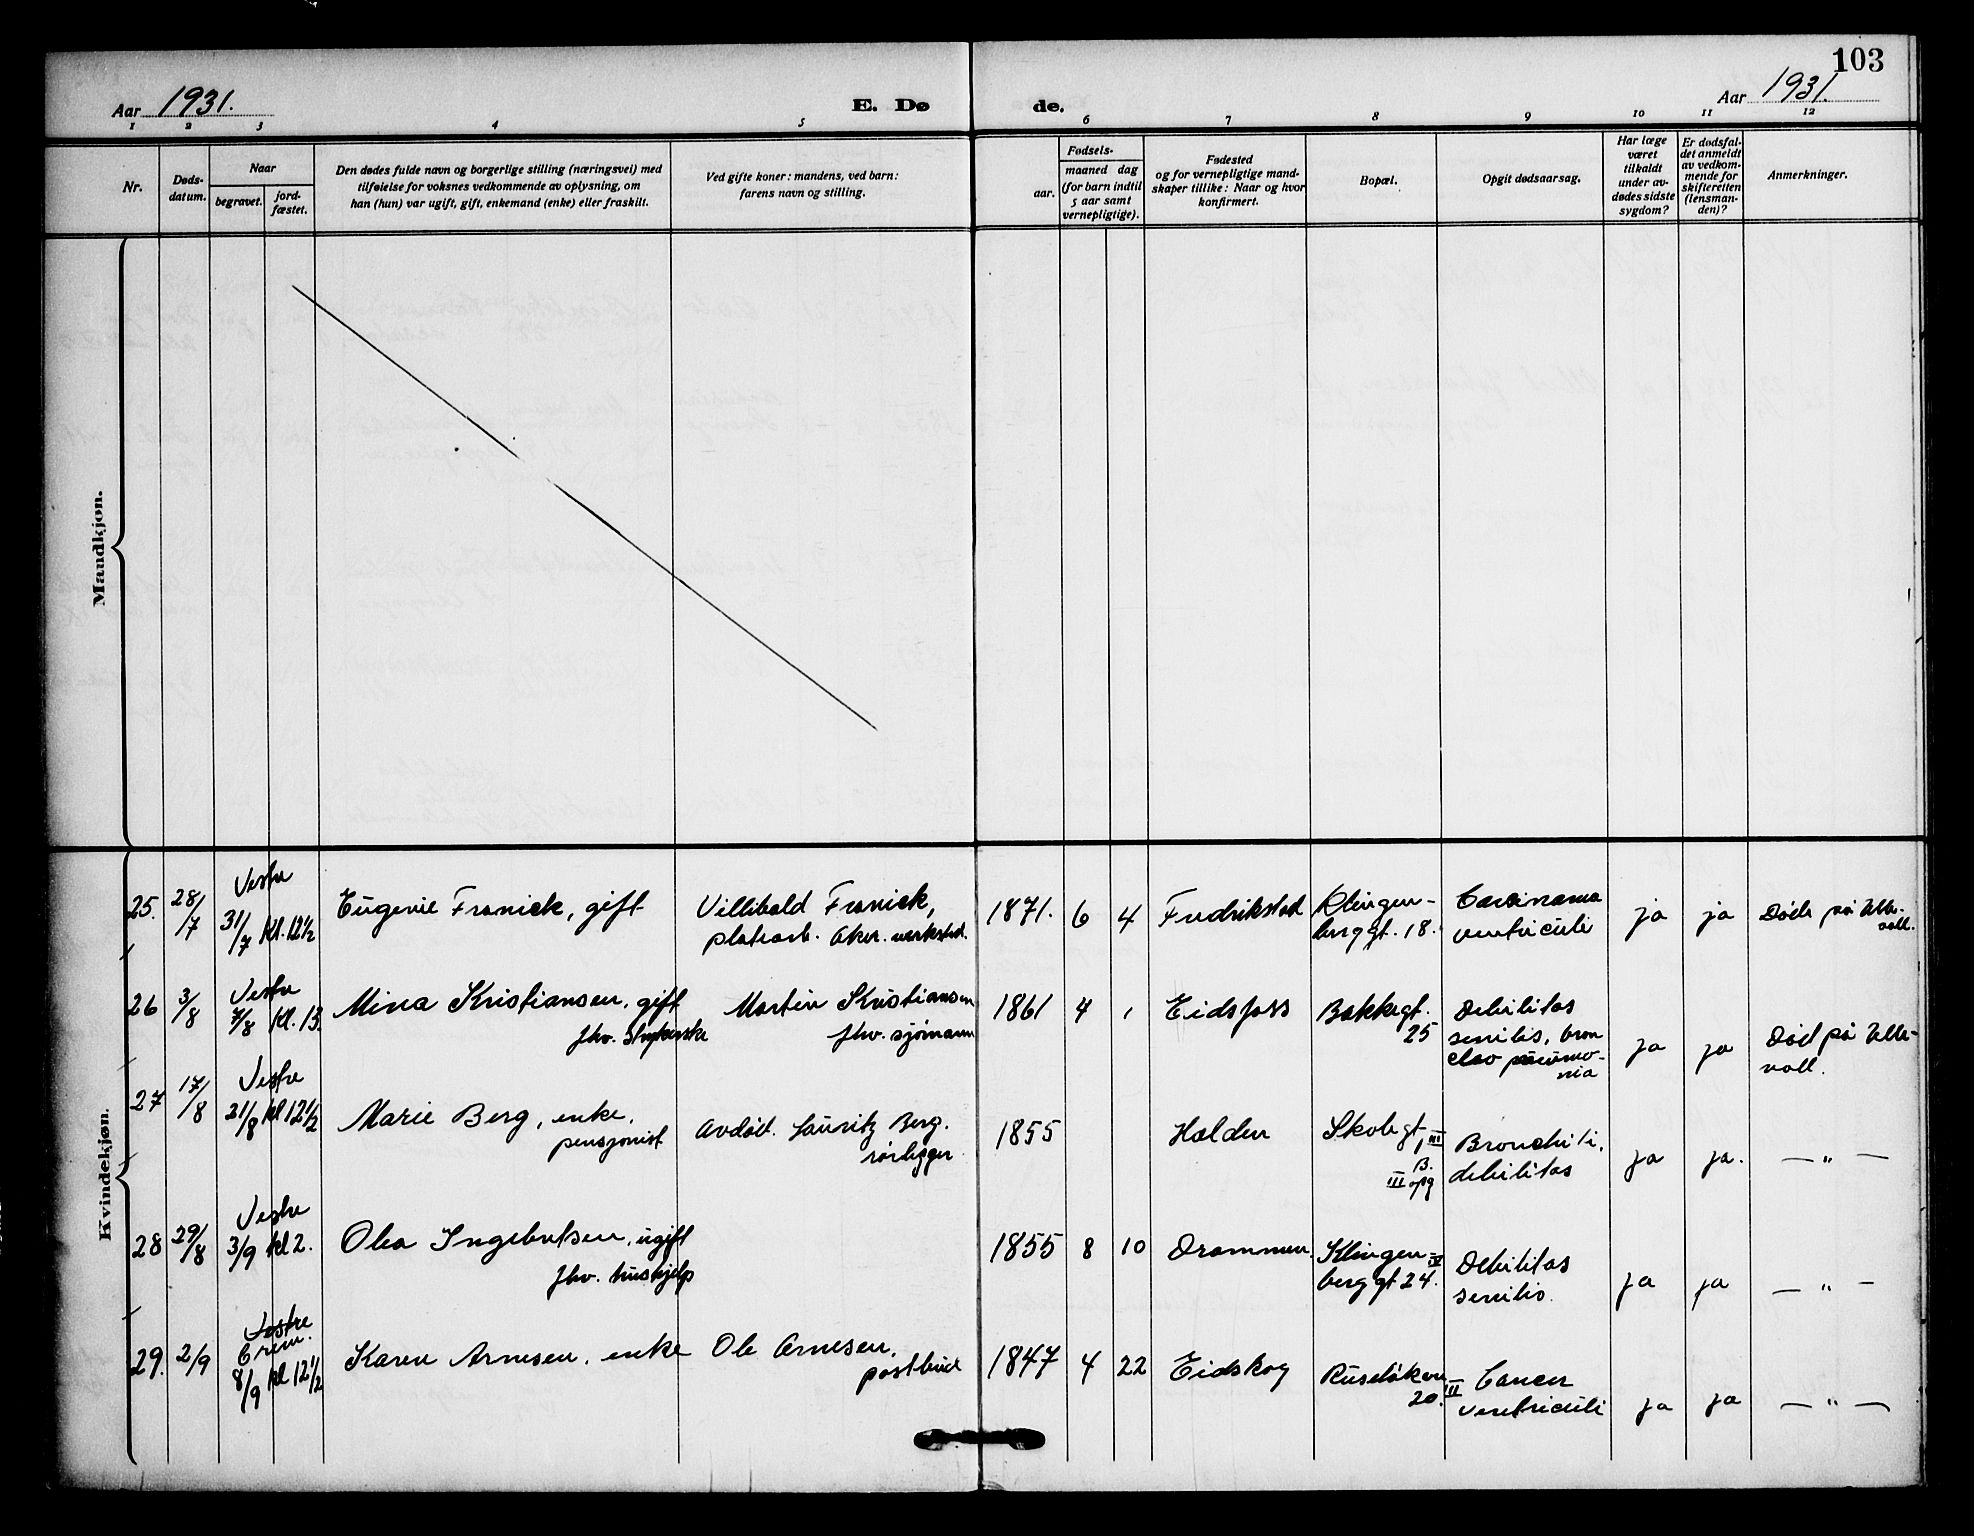 103
Aar 1931. E. Dø de. Aar 1931.
1 2 3 4 5 6 7 8 9 10 11 12
Nr.
Døds-
datum.
Naar
begravet.
jord-
fæstet.
Den dødes fulde navn og borgerlige stilling (næringsvei) med
tilføielse for voksnes vedkommende av oplysning, om
han (hun) var ugift, gift, enkemand (enke) eller fraskilt.
Ved gifte koner: mandens, ved barn:
farens navn og stilling.
Fødsels-
aar.
maaned dag
(for barn indtil
5 aar samt
vernepligtige).
Fødested
og for vernepligtige mand-
skaper tillike: Naar og hvor
konfirmert.
Bopæl.
Opgit dødsaarsag.
Har læge
været
tilkaldt
under av-
dødes sidste
sygdom?
Er dødsfal-
det anmeldt
av vedkom-
mende for
skifteretten
(lensman-
den)?
Anmerkninger.
Mandkjøn.
Kvindekjøn.
25. 28/7
Vestre
31/7 kl. 12½
Eugenie Franick, gift
Villibald Franick,
platearb. Aker. verksted.
1871. 6 4
Fredrikstad
Klingen-
berggt. 18.
Carcinoma
ventriculi
ja ja
Døde på Ulle-
voll.
26 3/8
Vestre
7/8 kl. 13
Mina Kristiansen, gift
fhv. strykerske
Martin Kristiansen
fhv. sjømann
1861 4 1
Eidsfoss
Bakkegt.
25
Debilitas
senilis, bron
cho pneumo-
nia
ja ja
Død på Ulle-
voll.
27 17/8
Vestre
21/8 kl 12½
Marie Berg, enke.
pensjonist
Avdød. Lauritz Berg.
rørlegger
1855
Halden
Skolegt
1 III
B.
III opg
Bronchiti,
debilitas
ja ja.
— " —
28 29/8
Vestre
3/9 kl 2.
Olea Ingebretsen, ugift
fhv. hushjelp
1855 8 10
Drammen.
Klingen- IV
berggt 24.
Debilitas
senilis.
ja ja
— " —
29. 2/9
Vestre
Crem.
8/9 kl 12½
Karen Arnesen, enke
Ole Arnesen,
postbud
1847 4 22
Eidskog
Ruseløkvn
20. III
Cancer
ventriculi
ja ja
— " —